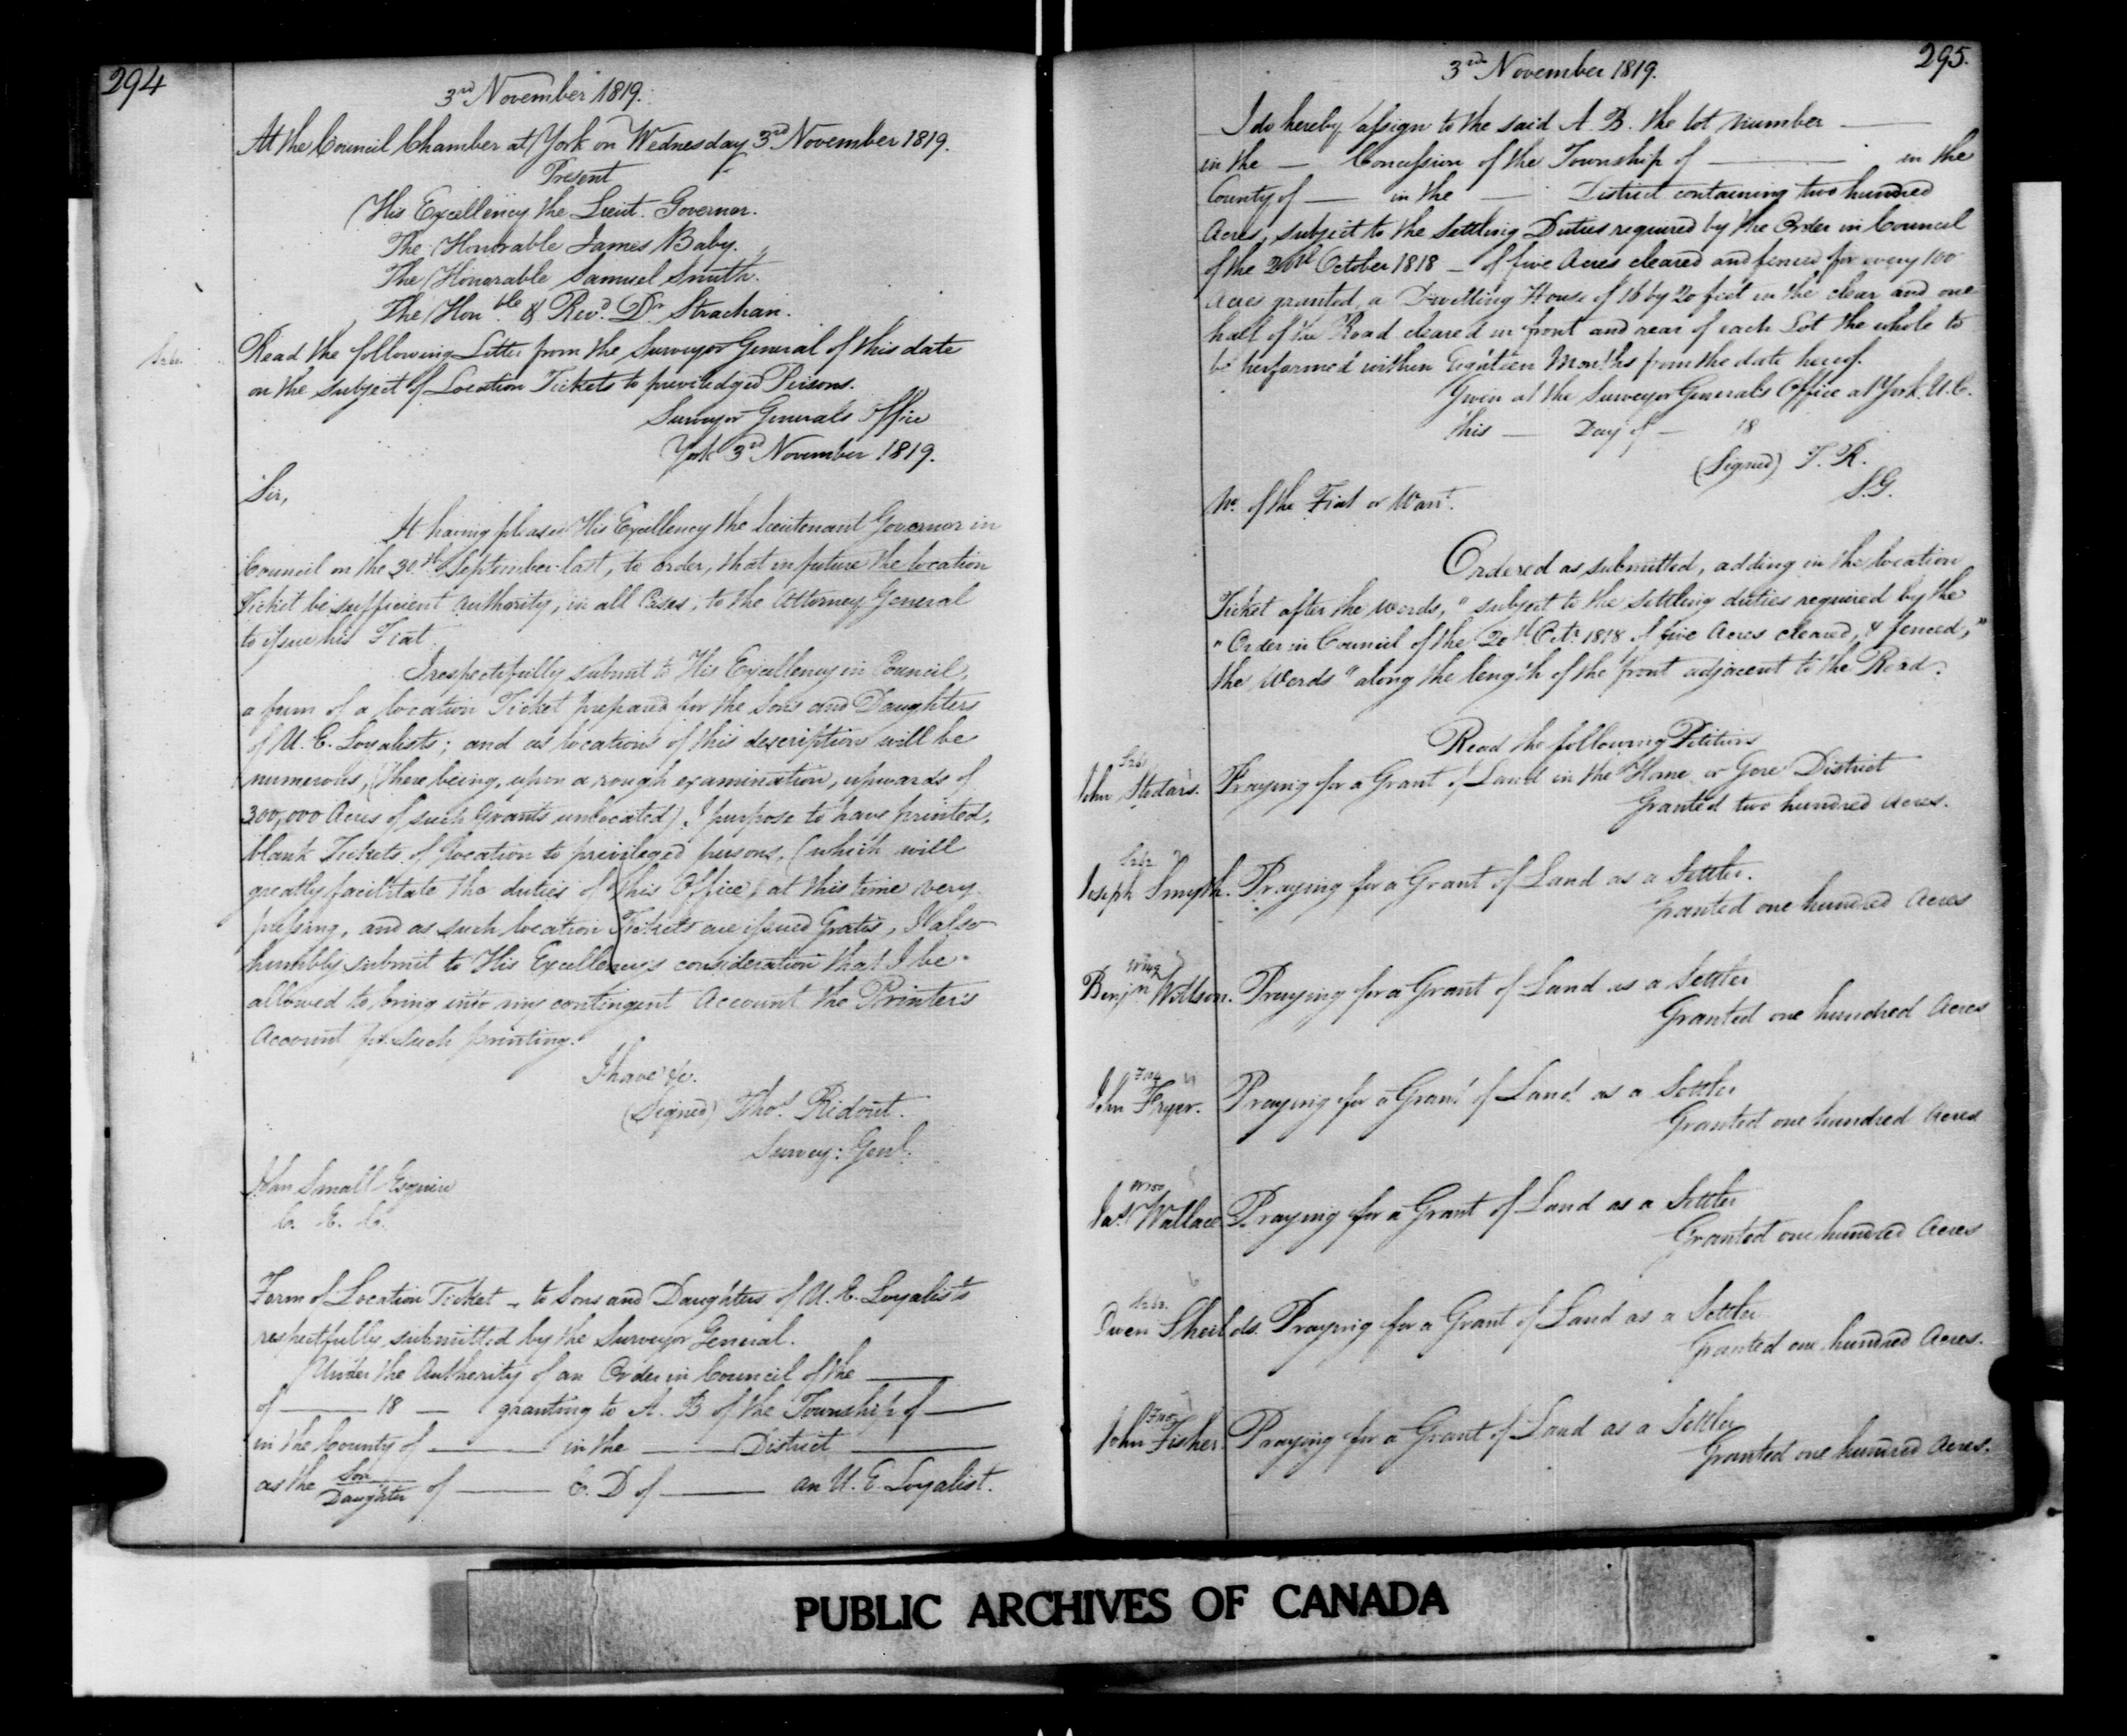 294
3rd November 1819.
At the Council Chamber at York on Wednesday 3rd November 1819.
Present
His Excellency the Lieut. Governor.
The Honorable James Baby.
The Honorable Samuel Smith.
The Honble & Revd. Dr. Strachan.
Read the following Letter from the Surveyor General of this date
on the subject of Location Tickets to priviledged Persons.
Surveyor Generals Office
York 3rd November 1819.
Sir,
It having pleased His Excellency the Lieutenant Governor in
Council on the 30th September last, to order, that in future the location
Ticket be sufficient authority, in all Cases, to the Attorney General
to issue his Fiat.
I respectfully submit to His Excellency in Council,
a form of a location Ticket prepared for the Sons and Daughters
of U. E. Loyalists; and as locations of this description will be
numerous, (there being, upon a rough examination, upwards of
300,000 Acres of such Grants unlocated). I purpose to have printed,
blank Tickets of location to privileged persons, (which will
greatly facilitate the duties of this Office, at this time very
pressing, and as such location Tickets are issued Gratis, I also
humbly submit to His Excellency's consideration that I be
allowed to bring into my contingent Account the Printer's
Account for such printing.
I have &c.
(Signed) Thos. Ridout.
Survey: Genl.
John Small Esquire
C. E. C.
Form of Location Ticket - to Sons and Daughters of U. E. Loyalists
respectfully submitted by the Surveyor General.
Under the Authority of an Order in Council of the ——
of —— 18 — granting to A. B of the Township of ——
in the County of —— in the —— District ——
as the Son Daughter of —— C. D of —— an U. E. Loyalist.
295.
3rd November 1819.
I do hereby assign to the said A. B. the lot number ——
in the — Concession of the Township of —— in the
County of — in the — District containing two hundred
Acres, subject to the Settling Duties required by the Order in Council
of the 20th October 1818 - of five Acres cleared and fenced for every 100
Acres granted, a Dwelling House of 16 by 20 feet in the clear and one
half of the Road cleared in front and rear of each Lot the whole to
be performed within Eighteen Months from the date hereof.
Given at the Surveyor Generals Office at York. U. C.
this — Day of — 18
(Signed) T. R.
S. G.
No. of the Fiat or Wart.
Ordered as submitted, adding in the location
Ticket after the words, "subject to the settling duties required by the
"Order in Council of the 20th Octr. 1818 of five Acres cleared, & fenced,"
the words "along the length of the front adjacent to the Road.
Read the following Petitions
John Stodars. Praying for a Grant of Land in the Home or Gore District
Granted two hundred Acres.
Joseph Smyth. Praying for a Grant of Land as a Settler.
Granted one hundred Acres
Benjn. Willson. Praying for a Grant of Land as a Settler
Granted one hundred Acres
John Fryer. Praying for a Grant of Land as a Settler
Granted one hundred Acres
Jas. Wallace. Praying for a Grant of Land as a Settler
Granted one hundred Acres
Owen Sheilds. Praying for a Grant of Land as a Settler
Granted one hundred Acres.
John Fisher. Praying for a Grant of Land as a Settler
Granted one hundred Acres.
PUBLIC ARCHIVES OF CANADA